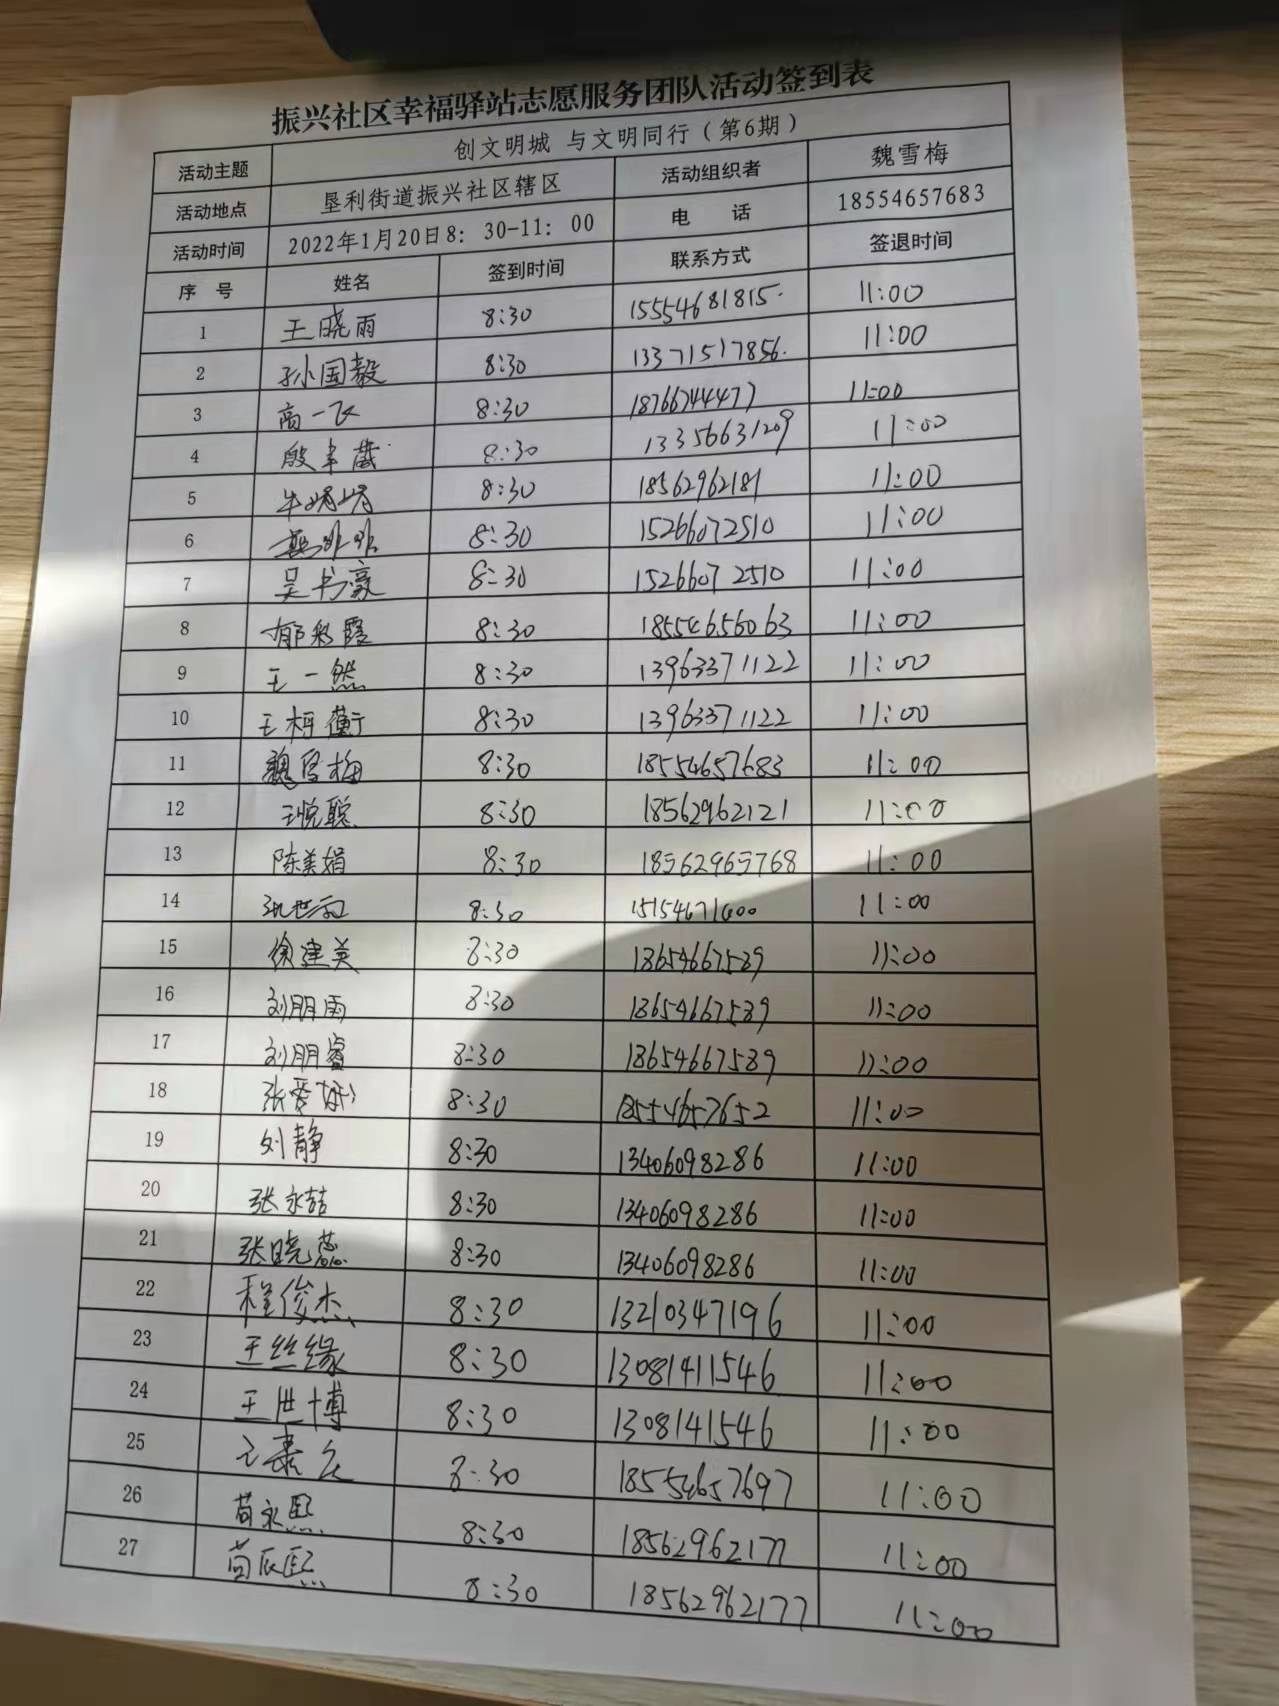 振兴社区幸福驿站志愿服务团队活动签到表
活动主题 创文明城 与文明同行（第6期）
活动地点 垦利街道振兴社区辖区 活动组织者 魏雪梅
活动时间 2022年1月20日8：30-11：00 电 话 18554657683
序 号 姓名 签到时间 联系方式 签退时间
1 王晓雨 8:30 15554681815 11:00
2 孙国毅 8:30 13371517856 11:00
3 高一飞 8:30 18766744477 11:00
4 8:30 13356631209 11:00
5 牛娟娟 8:30 18562962181 11:00
6 8:30 15266072510 11:00
7 吴书豪 8:30 15266072510 11:00
8 郁彩霞 8:30 18554656063 11:00
9 王一然 8:30 13963371122 11:00
10 王梓蘅 8:30 13963371122 11:00
11 魏雪梅 8:30 18554657683 11:00
12 王悦聪 8:30 18562962121 11:00
13 陈美娟 8:30 18562965768 11:00
14 8:30 15154671600 11:00
15 徐建美 8:30 18654667589 11:00
16 刘朋雨 8:30 18654667589 11:00
17 刘朋睿 8:30 18654667589 11:00
18 张爱娣 8:30 18554657652 11:00
19 刘静 8:30 13406098286 11:00
20 张永喆 8:30 13406098286 11:00
21 张晓蕊 8:30 13406098286 11:00
22 程俊杰 8:30 13210347196 11:00
23 王丝缘 8:30 13081411546 11:00
24 王世博 8:30 1308141546 11:00
25 8:30 18554657697 11:00
26 苟永熙 8:30 18562962177 11:00
27 苟辰熙 8:30 18562962177 11:00